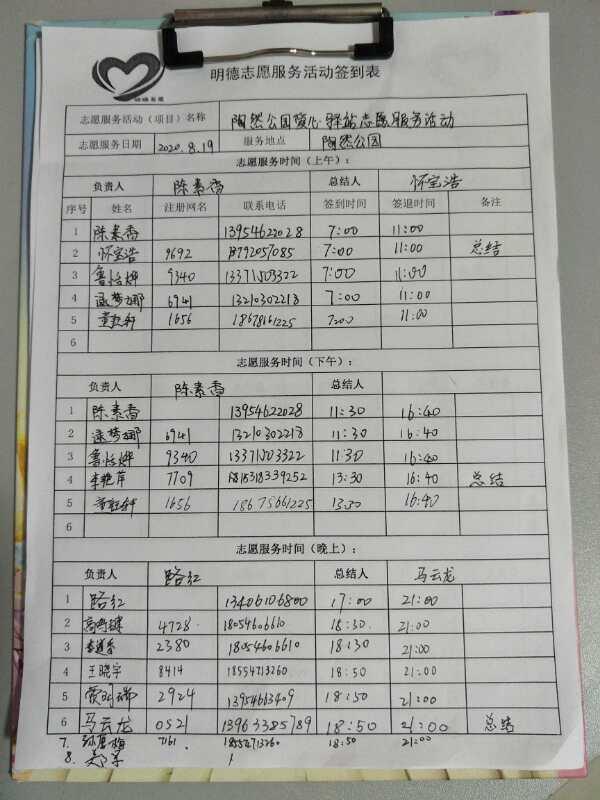 明德志愿服务活动签到表
志愿服务活动（项目）名称 陶然公园暖心驿站志愿服务活动
志愿服务日期 2020.8.19 服务地点 陶然公园
志愿服务时间（上午）：
负责人 陈素香 总结人 怀宝浩
序号 姓名 注册网名 联系电话 签到时间 签退时间 备注
1 陈素香 13954622028 7:00 11:00
2 怀宝浩 9692 11:00 7:00 总结
3 鲁恬烨 9340 13371503322 7:00 11:00
4 6941 13210302218 7:00 11:00
5 1656 18678161225 7:00 11:00
6
志愿服务时间（下午）：
负责人 陈素香 总结人
1 陈素香 13954622028 11:30 16:40
2 6941 13210302218 11:30 16:40
3 鲁恬烨 9340 13371503322 11:30 16:40
4 李艳萍 7709 13:30 16:40 总结
5 1656 13:30 16:40
6
志愿服务时间（晚上）：
负责人 路红 总结人 马云龙
1 路红 13406106800 17:00 21:00
2 4728 18054606610 18:30 21:00
3 2380 18054606610 18:30 21:00
4 王晓宇 8414 18554713260 18:50 21:00
5 贾明瑞 2924 13954663409 18:50 21:00
6 马云龙 0521 13963385789 18:50 21:00 总结
7. 7161 18554713260 18:50 21:00
8.